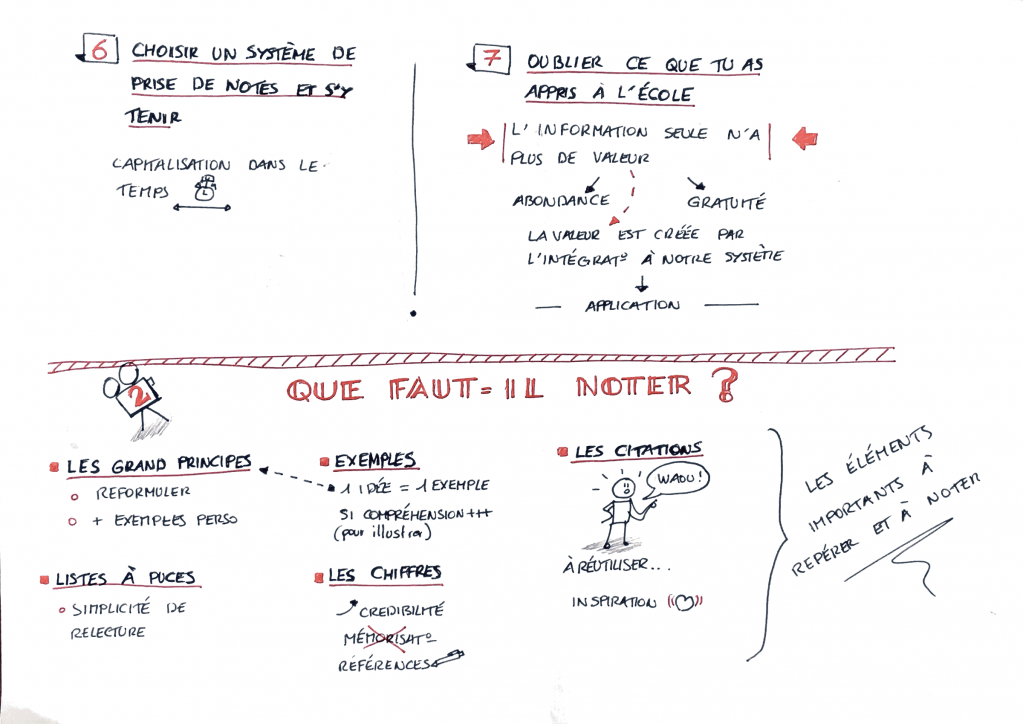 6 CHOISIR UN SYSTÈME DE
PRISE DE NOTES ET S'Y
TENIR
CAPITALISATION DANS LE
TEMPS
7 OUBLIER CE QUE TU AS
APPRIS À L'ÉCOLE
L'INFORMATION SEULE N'A
PLUS DE VALEUR
ABONDANCE GRATUITÉ
LA VALEUR EST CRÉÉE PAR
L'INTÉGRATº À NOTRE SYSTÈME
APPLICATION
2 QUE FAUT-IL NOTER ?
LES GRAND PRINCIPES
REFORMULER
+ EXEMPLES PERSO
EXEMPLES
1 IDÉE = 1 EXEMPLE
SI COMPRÉHENSION +++
(pour illustrer)
LES CITATIONS
WAOU !
À RÉUTILISER...
INSPIRATION
LISTES À PUCES
SIMPLICITÉ DE
RELECTURE
LES CHIFFRES
CREDIBILITÉ
MÉMORISATº
RÉFÉRENCES
LES ÉLÉMENTS
IMPORTANTS À
REPÉRER ET À NOTER